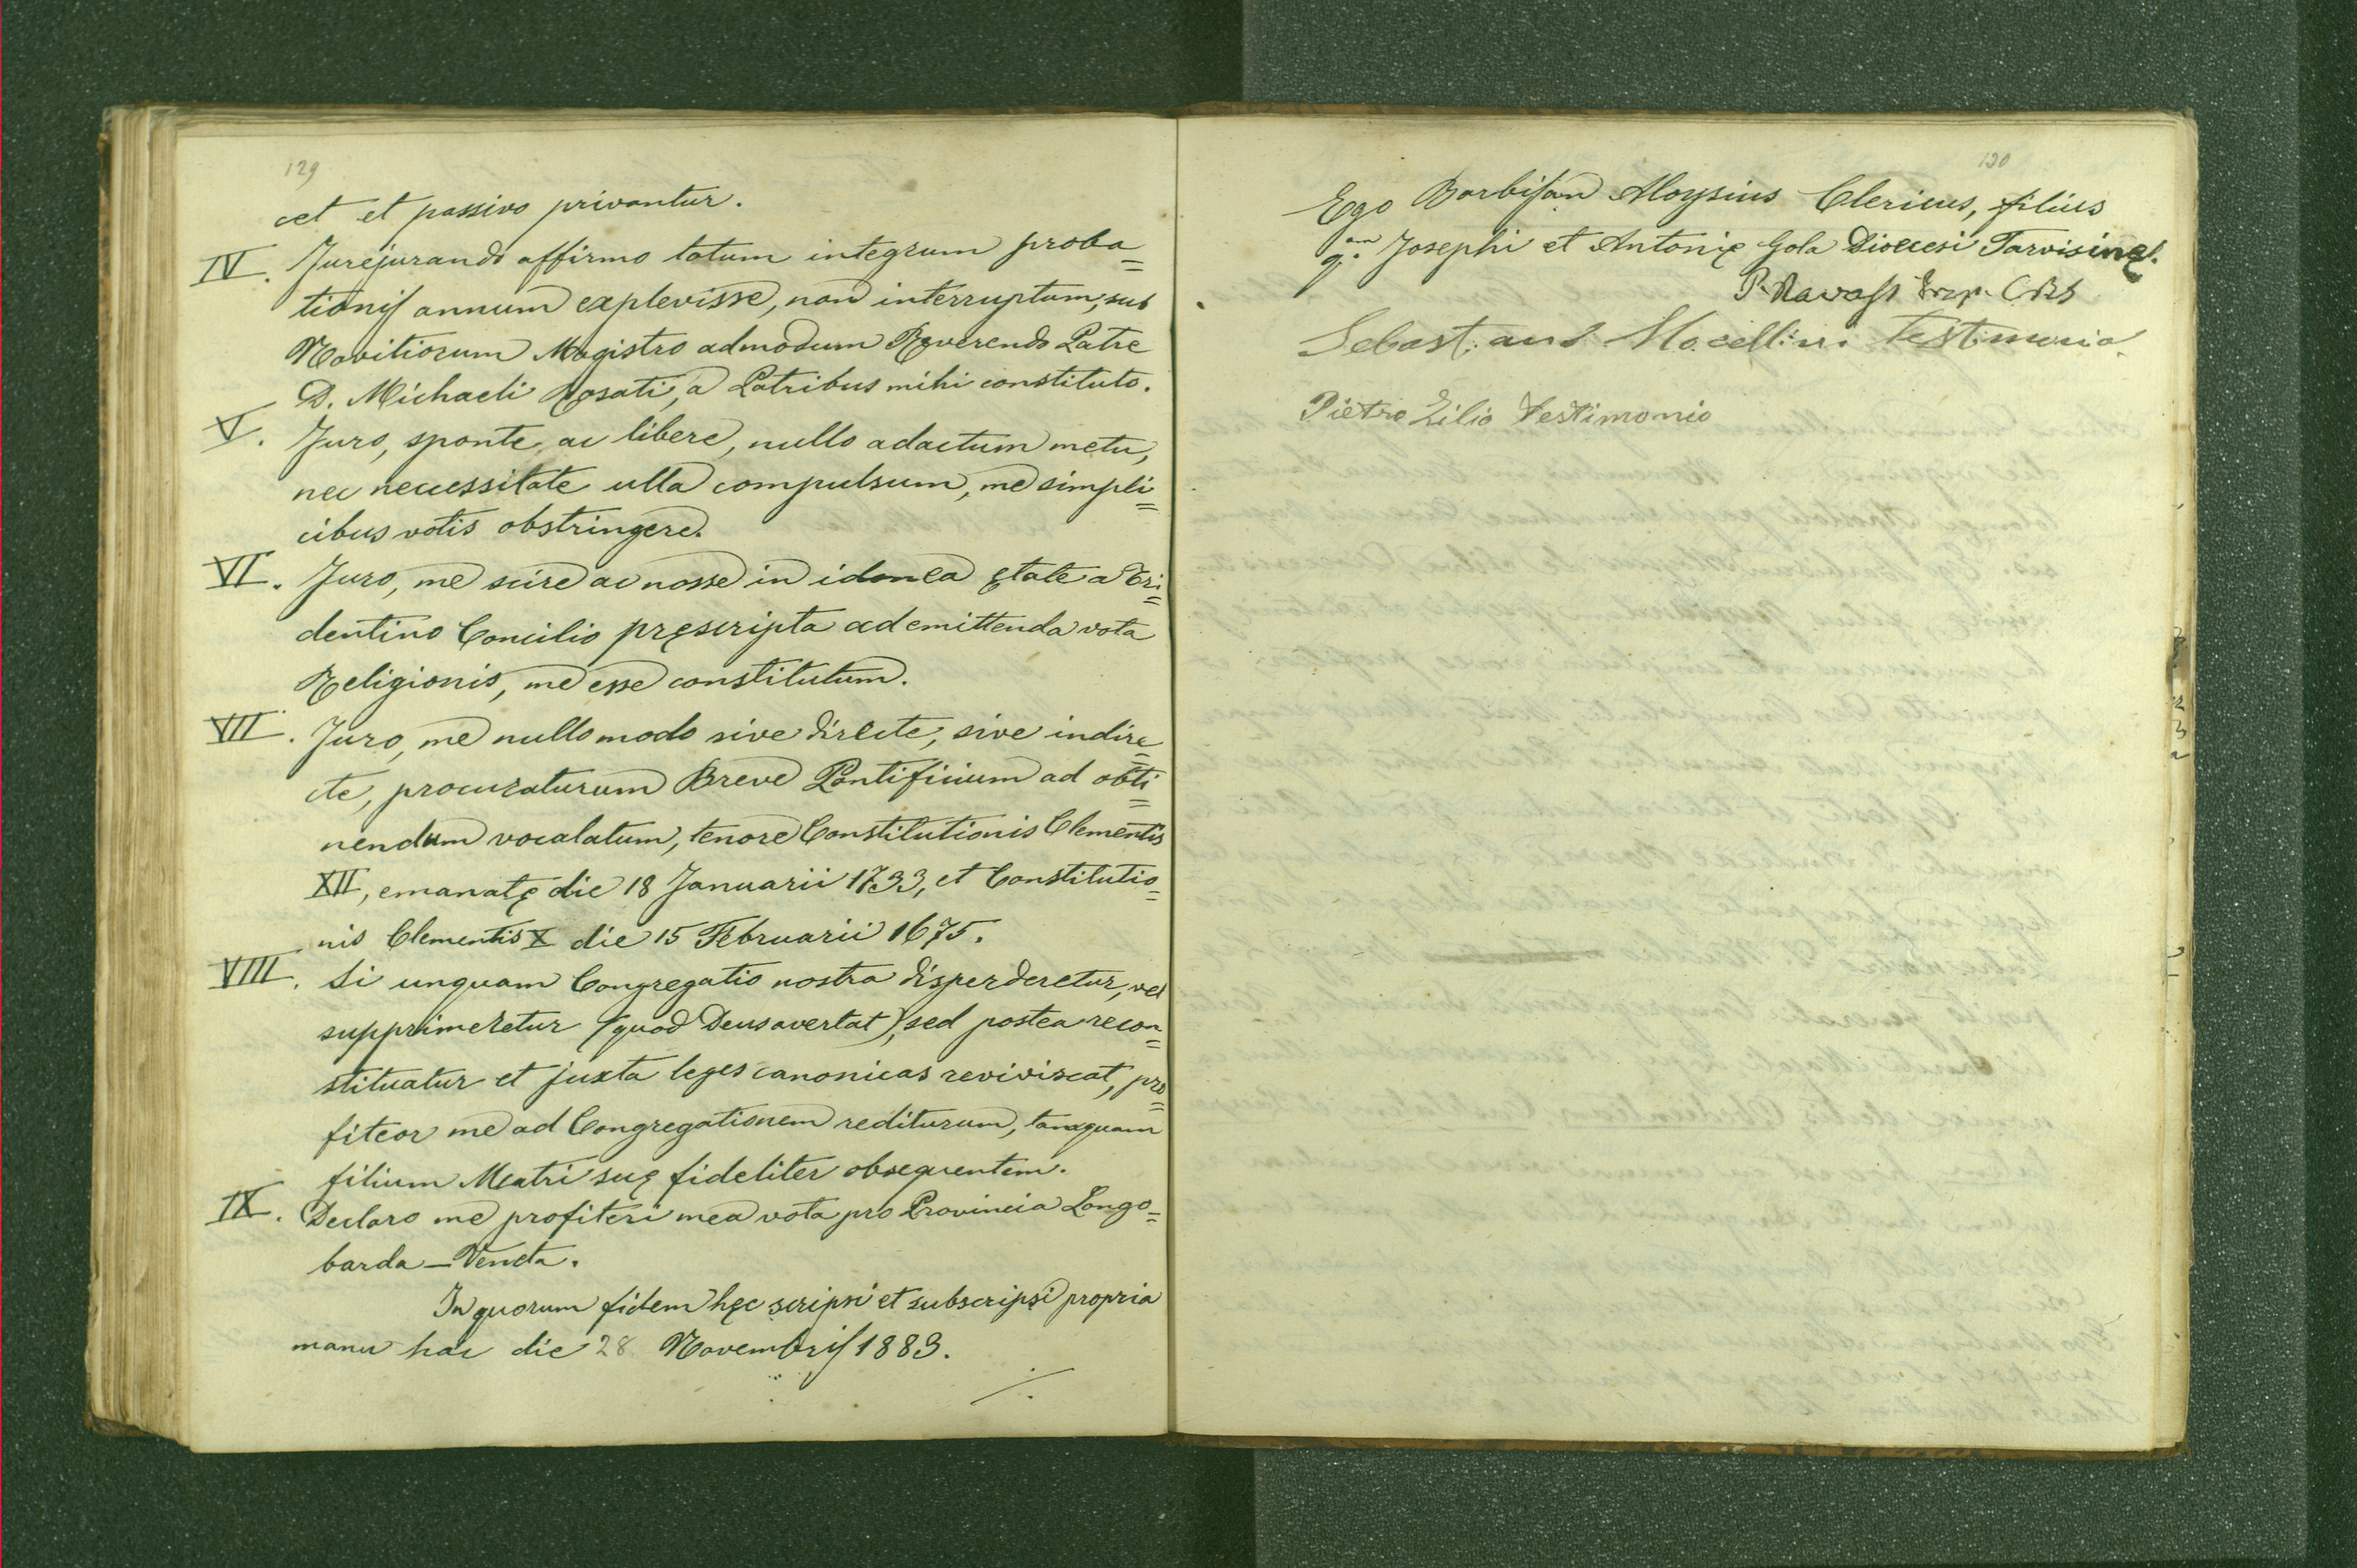 129
cet et passivo privantur.
IV. Jurejurando affirmo totum integrum proba=
tionis annum explevisse, non interruptum, sub
Novitiorum Magistro admodum Reverendo Patre
D. Michaeli Rosati, a Patribus mihi constituto.
V. Juro, sponte ac libere, nullo adactum metu,
nec necessitate ulla compulsum, me simpli=
cibus votis obstringere.
VI. Juro, me scire ac nosse in idonea ętate a Tri=
dentino Concilio pręscripta ad emittenda vota
Religionis, me esse constitutum.
VII. Juro, me nullo modo sive directe, sive indire=
cte, procuraturum Breve Pontificium ad obti=
nendum vocalatum, tenore Constitutionis Clementis
XII, emanatę die 18 Januarii 1733, et Constitutio=
nis Clementis X die 15 Februarii 1675.
VIII. Si unquam Congregatio nostra disperderetur, vel
supprimeretur (quod Deus avertat), sed postea recon=
stituatur et juxta leges canonicas reviviscat, pro=
fiteor me ad Congregationem rediturum, tanquam
filium Matri suę fideliter obsequentem.
IX. Declaro me profiteri mea vota pro Provincia Longo=
barda - Veneta.
In quorum fidem hęc scripsi et subscripsi propria
manu hac die 28 Novembris 1883.
./.
130
Ego Barbisan Aloysius Clericus, filius
q.am Josephi et Antonię Gola Diœcesi Tarvisinę.
P. CRS
Sebastiano Mocellini Testimonio
Pietro Zilio Testimonio